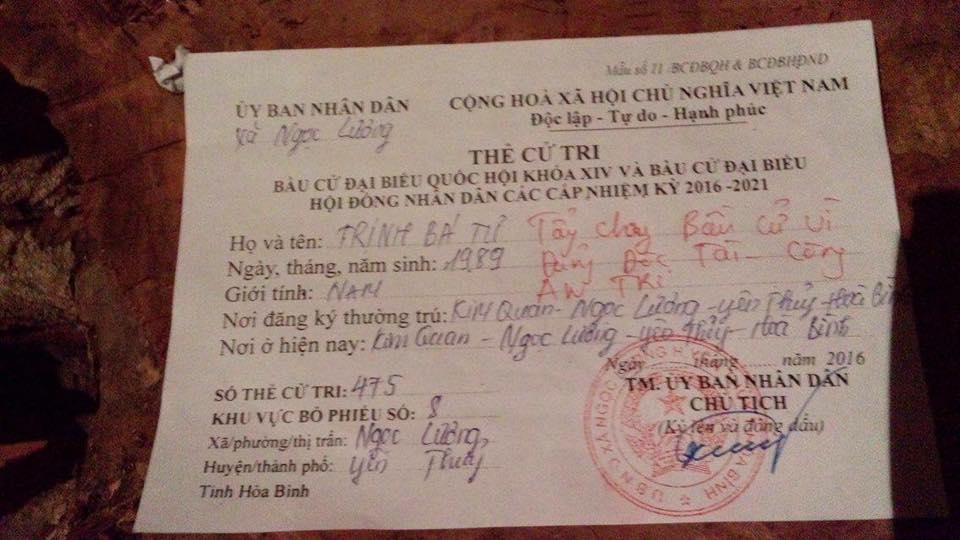 Mẫu số 11 /BCĐBQH & BCĐBHĐND
ỦY BAN NHÂN DÂN
xã Ngọc Lương
CỘNG HOÀ XÃ HỘI CHỦ NGHĨA VIỆT NAM
Độc lập - Tự do - Hạnh phúc
THẺ CỬ TRI
BẦU CỬ ĐẠI BIỂU QUỐC HỘI KHÓA XIV VÀ BẦU CỬ ĐẠI BIỂU
HỘI ĐỒNG NHÂN DÂN CÁC CẤP NHIỆM KỲ 2016 -2021
Họ và tên: TRỊNH BÁ TƯ Tẩy chay Bầu cử vì
Ngày, tháng, năm sinh: 1989 Đảng Độc Tài - Cộng
Giới tính: NAM ĂN THỊ
Nơi đăng ký thường trú: KIM Quán- Ngọc Lương -yên Thủy -Hoà Bình
Nơi ở hiện nay: Kim Quan - Ngọc Lương -yen Thủy- Hoà Bình
Ngày tháng năm 2016
SỐ THẺ CỬ TRI: 475
KHU VỰC BỎ PHIẾU SỐ: 8
Xã/phường/thị trấn: Ngọc Lương
Huyện/thành phố: Yên Thuỷ
Tỉnh Hòa Bình
TM. ỦY BAN NHÂN DÂN
CHỦ TỊCH
(Ký tên và đóng dấu)